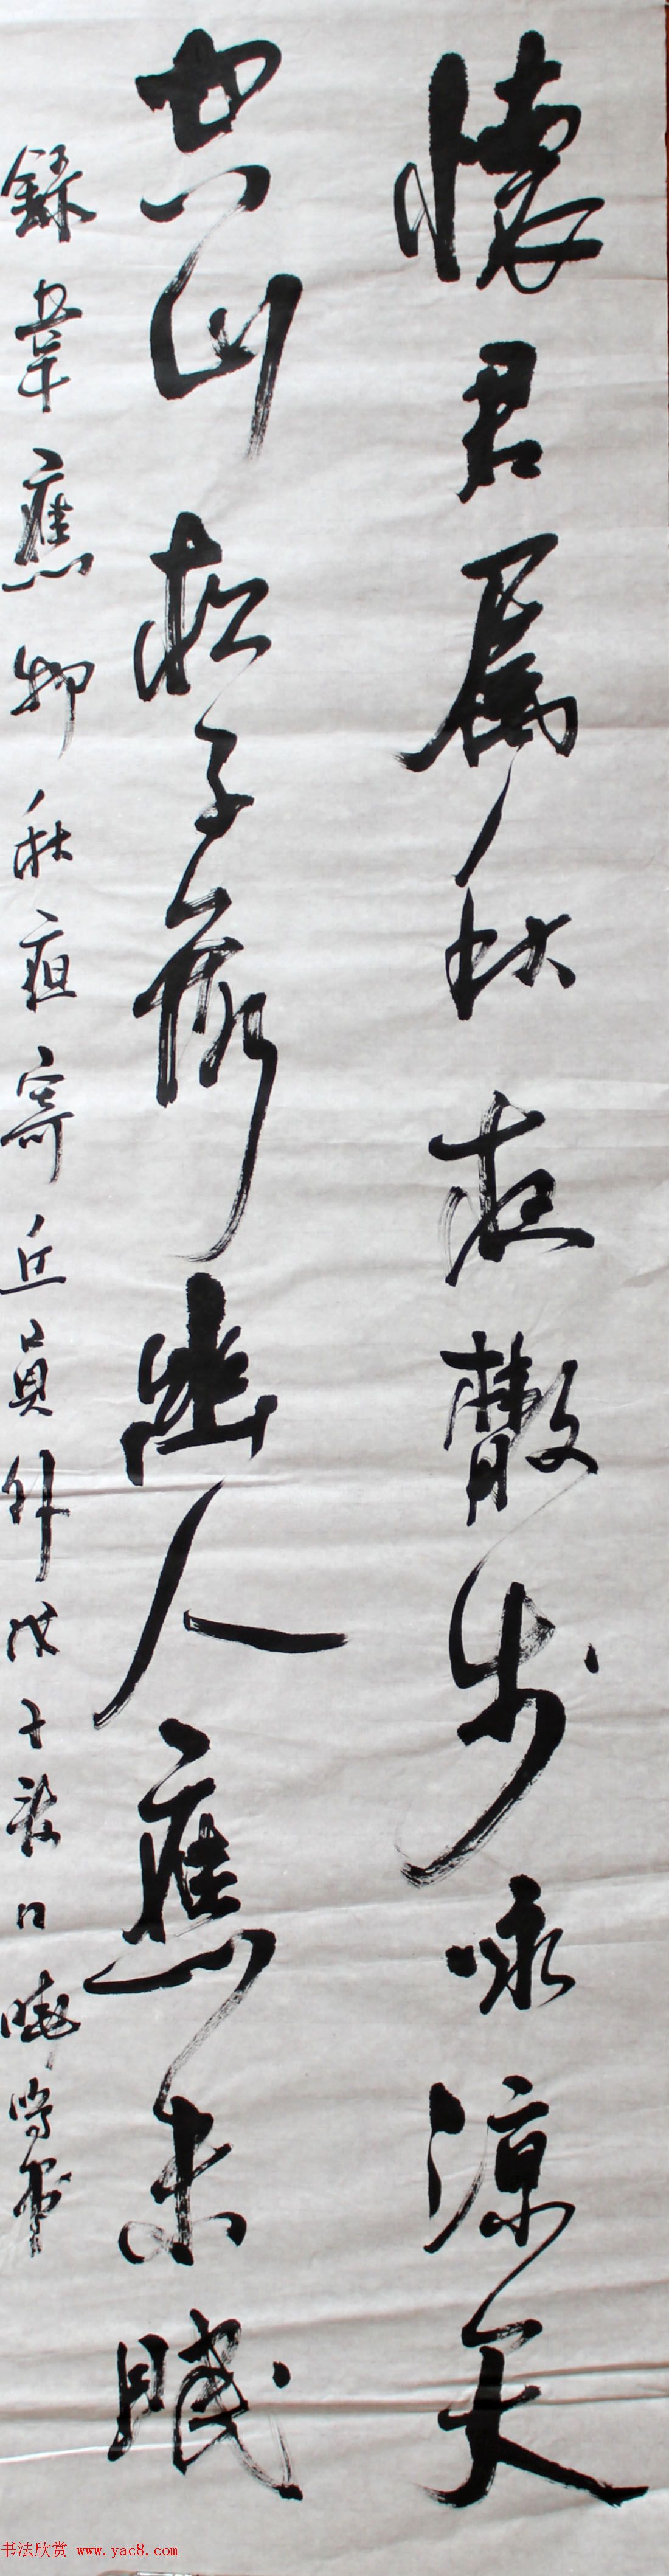 懷君属秋夜散步咏涼天
空山松子落幽人應未眠
錄韋應物秋夜寄丘員外戊子日書
书法欣赏 www.yac8.com